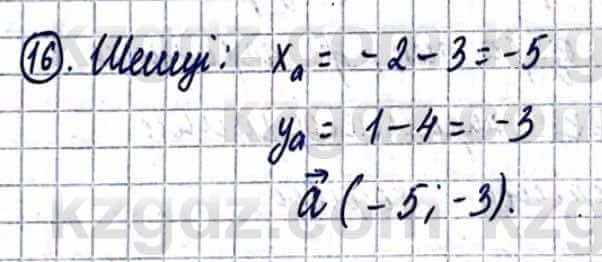 16. Шешуі: xₐ = -2-3 = -5
yₐ = 1-4 = -3
a⃗ (-5; -3).
kzgdz.com